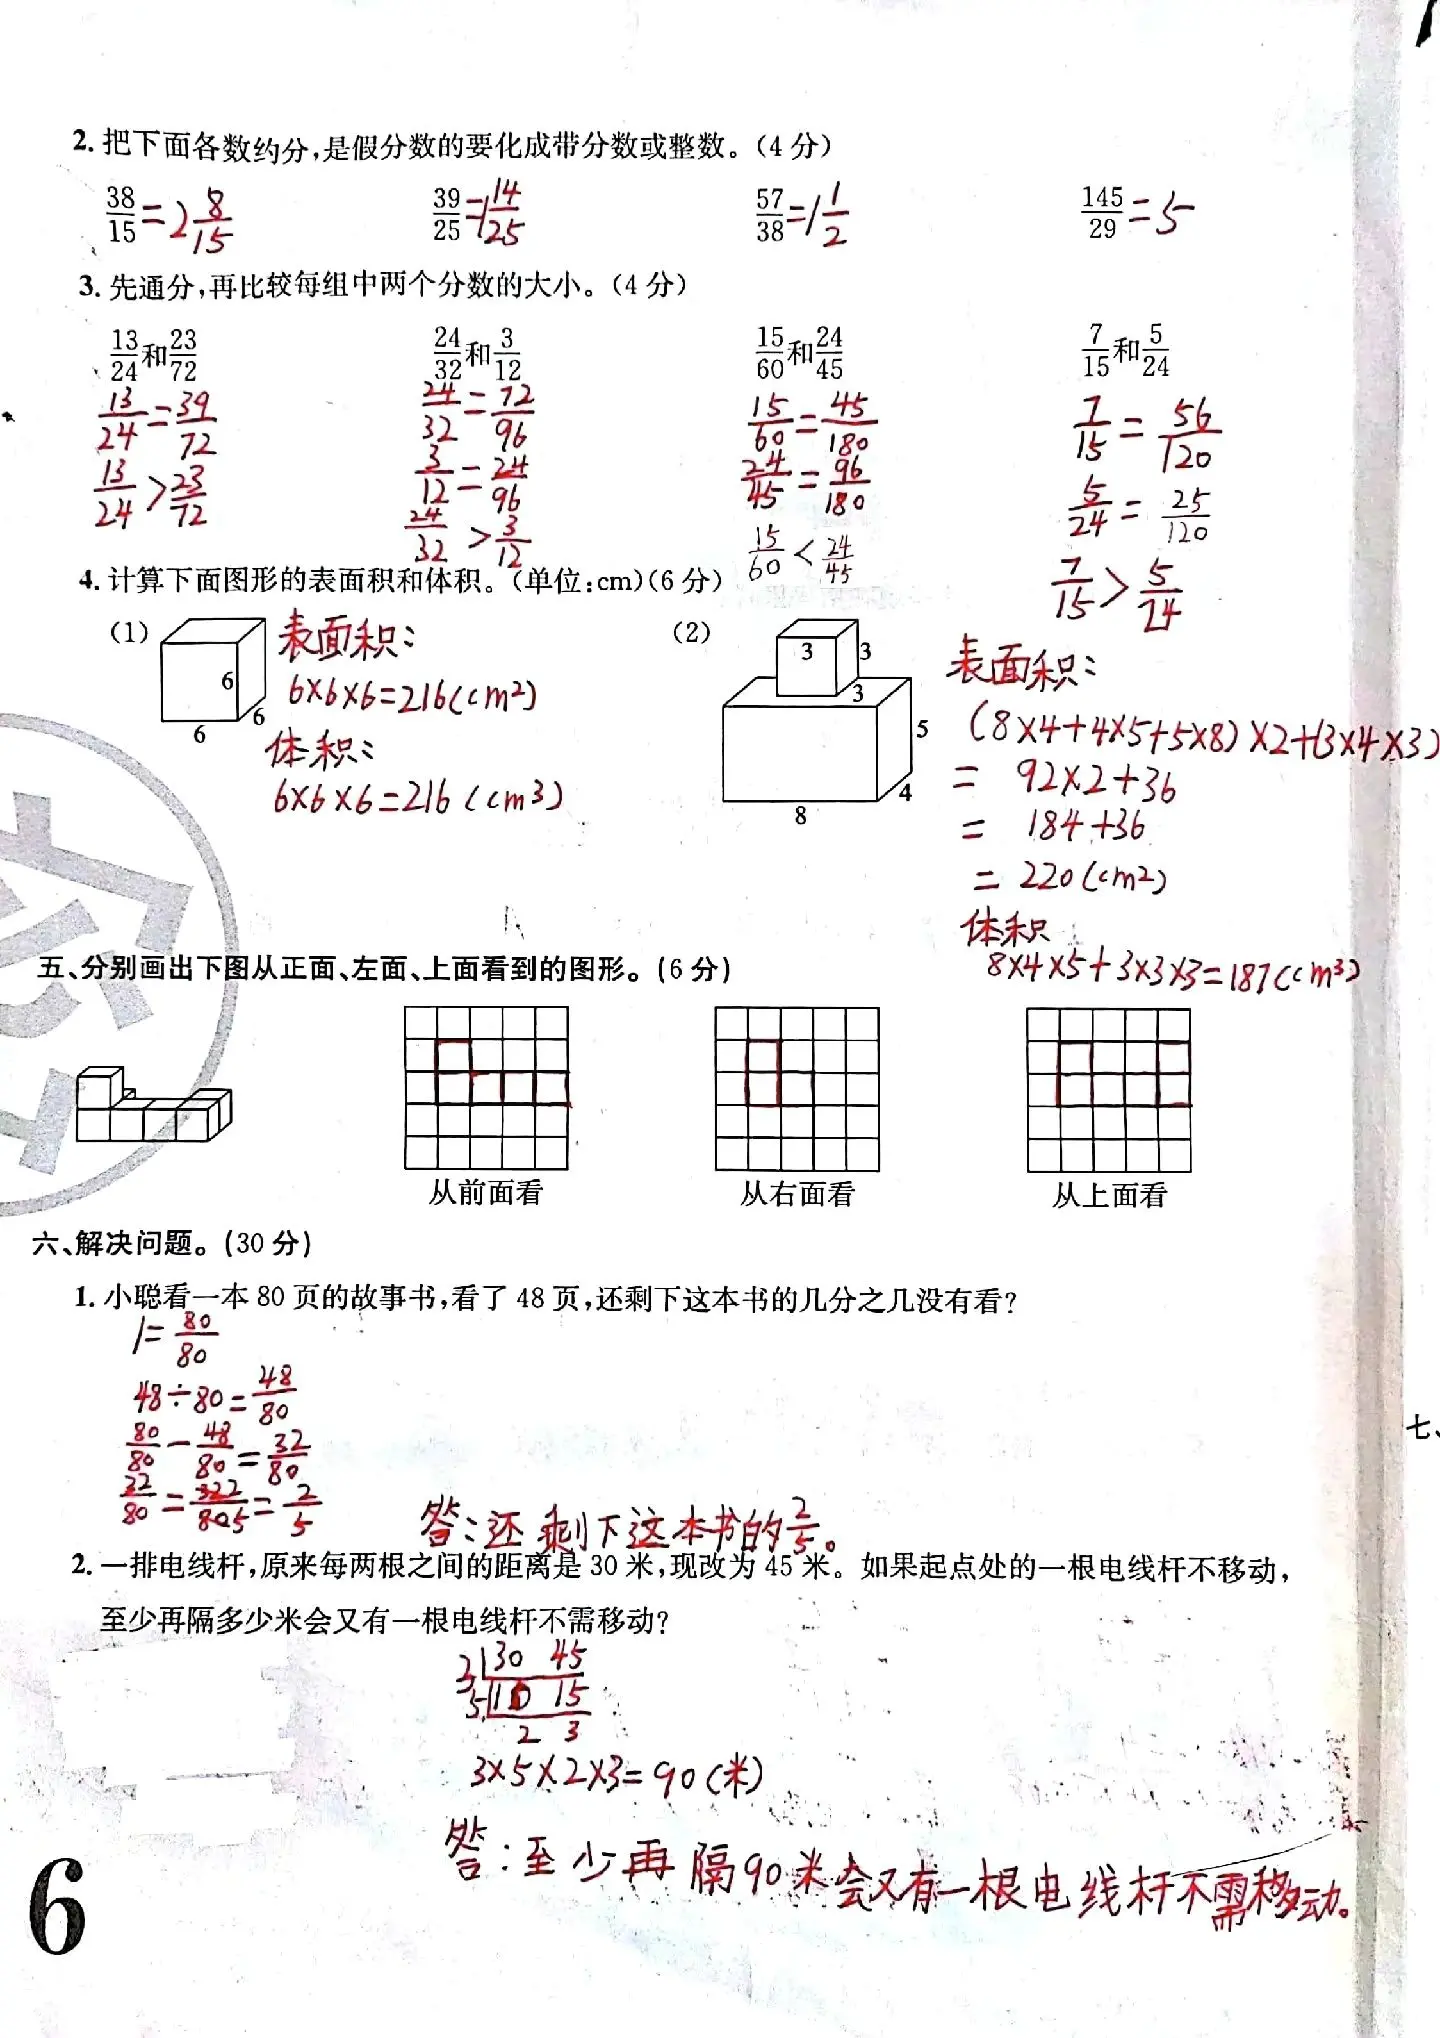 2. 把下面各数约分,是假分数的要化成带分数或整数。(4 分)
38/15=2 8/15 39/25=1 14/25 57/38=1 1/2 145/29=5
3. 先通分,再比较每组中两个分数的大小。(4 分)
13/24和23/72 24/32和3/12 15/60和24/45 7/15和5/24
13/24=39/72 24/32=72/96 15/60=45/180 7/15=56/120
13/24>23/72 3/12=24/96 24/45=96/180 5/24=25/120
24/32>3/12 15/60<24/45 7/15>5/24
4. 计算下面图形的表面积和体积。(单位:cm)(6 分)
(1) 6 6 6
表面积:
6×6×6=216(cm²)
体积:
6×6×6=216(cm³)
(2) 3 3 3 5 4 8
表面积:
(8×4+4×5+5×8)×2+(3×4×3)
= 92×2+36
= 184+36
= 220(cm²)
体积
8×4×5+3×3×3=187(cm³)
五、分别画出下图从正面、左面、上面看到的图形。(6 分)
从前面看 从右面看 从上面看
六、解决问题。(30 分)
1. 小聪看一本 80 页的故事书,看了 48 页,还剩下这本书的几分之几没有看?
1=80/80
48÷80=48/80
80/80-48/80=32/80
32/80=322/805=2/5
答:还剩下这本书的2/5。
2. 一排电线杆,原来每两根之间的距离是 30 米,现改为 45 米。如果起点处的一根电线杆不移动,
至少再隔多少米会又有一根电线杆不需移动?
2 30 45
5 10 15
2 3
3×5×2×3=90(米)
答:至少再隔90米会又有一根电线杆不需移动。
6
七、